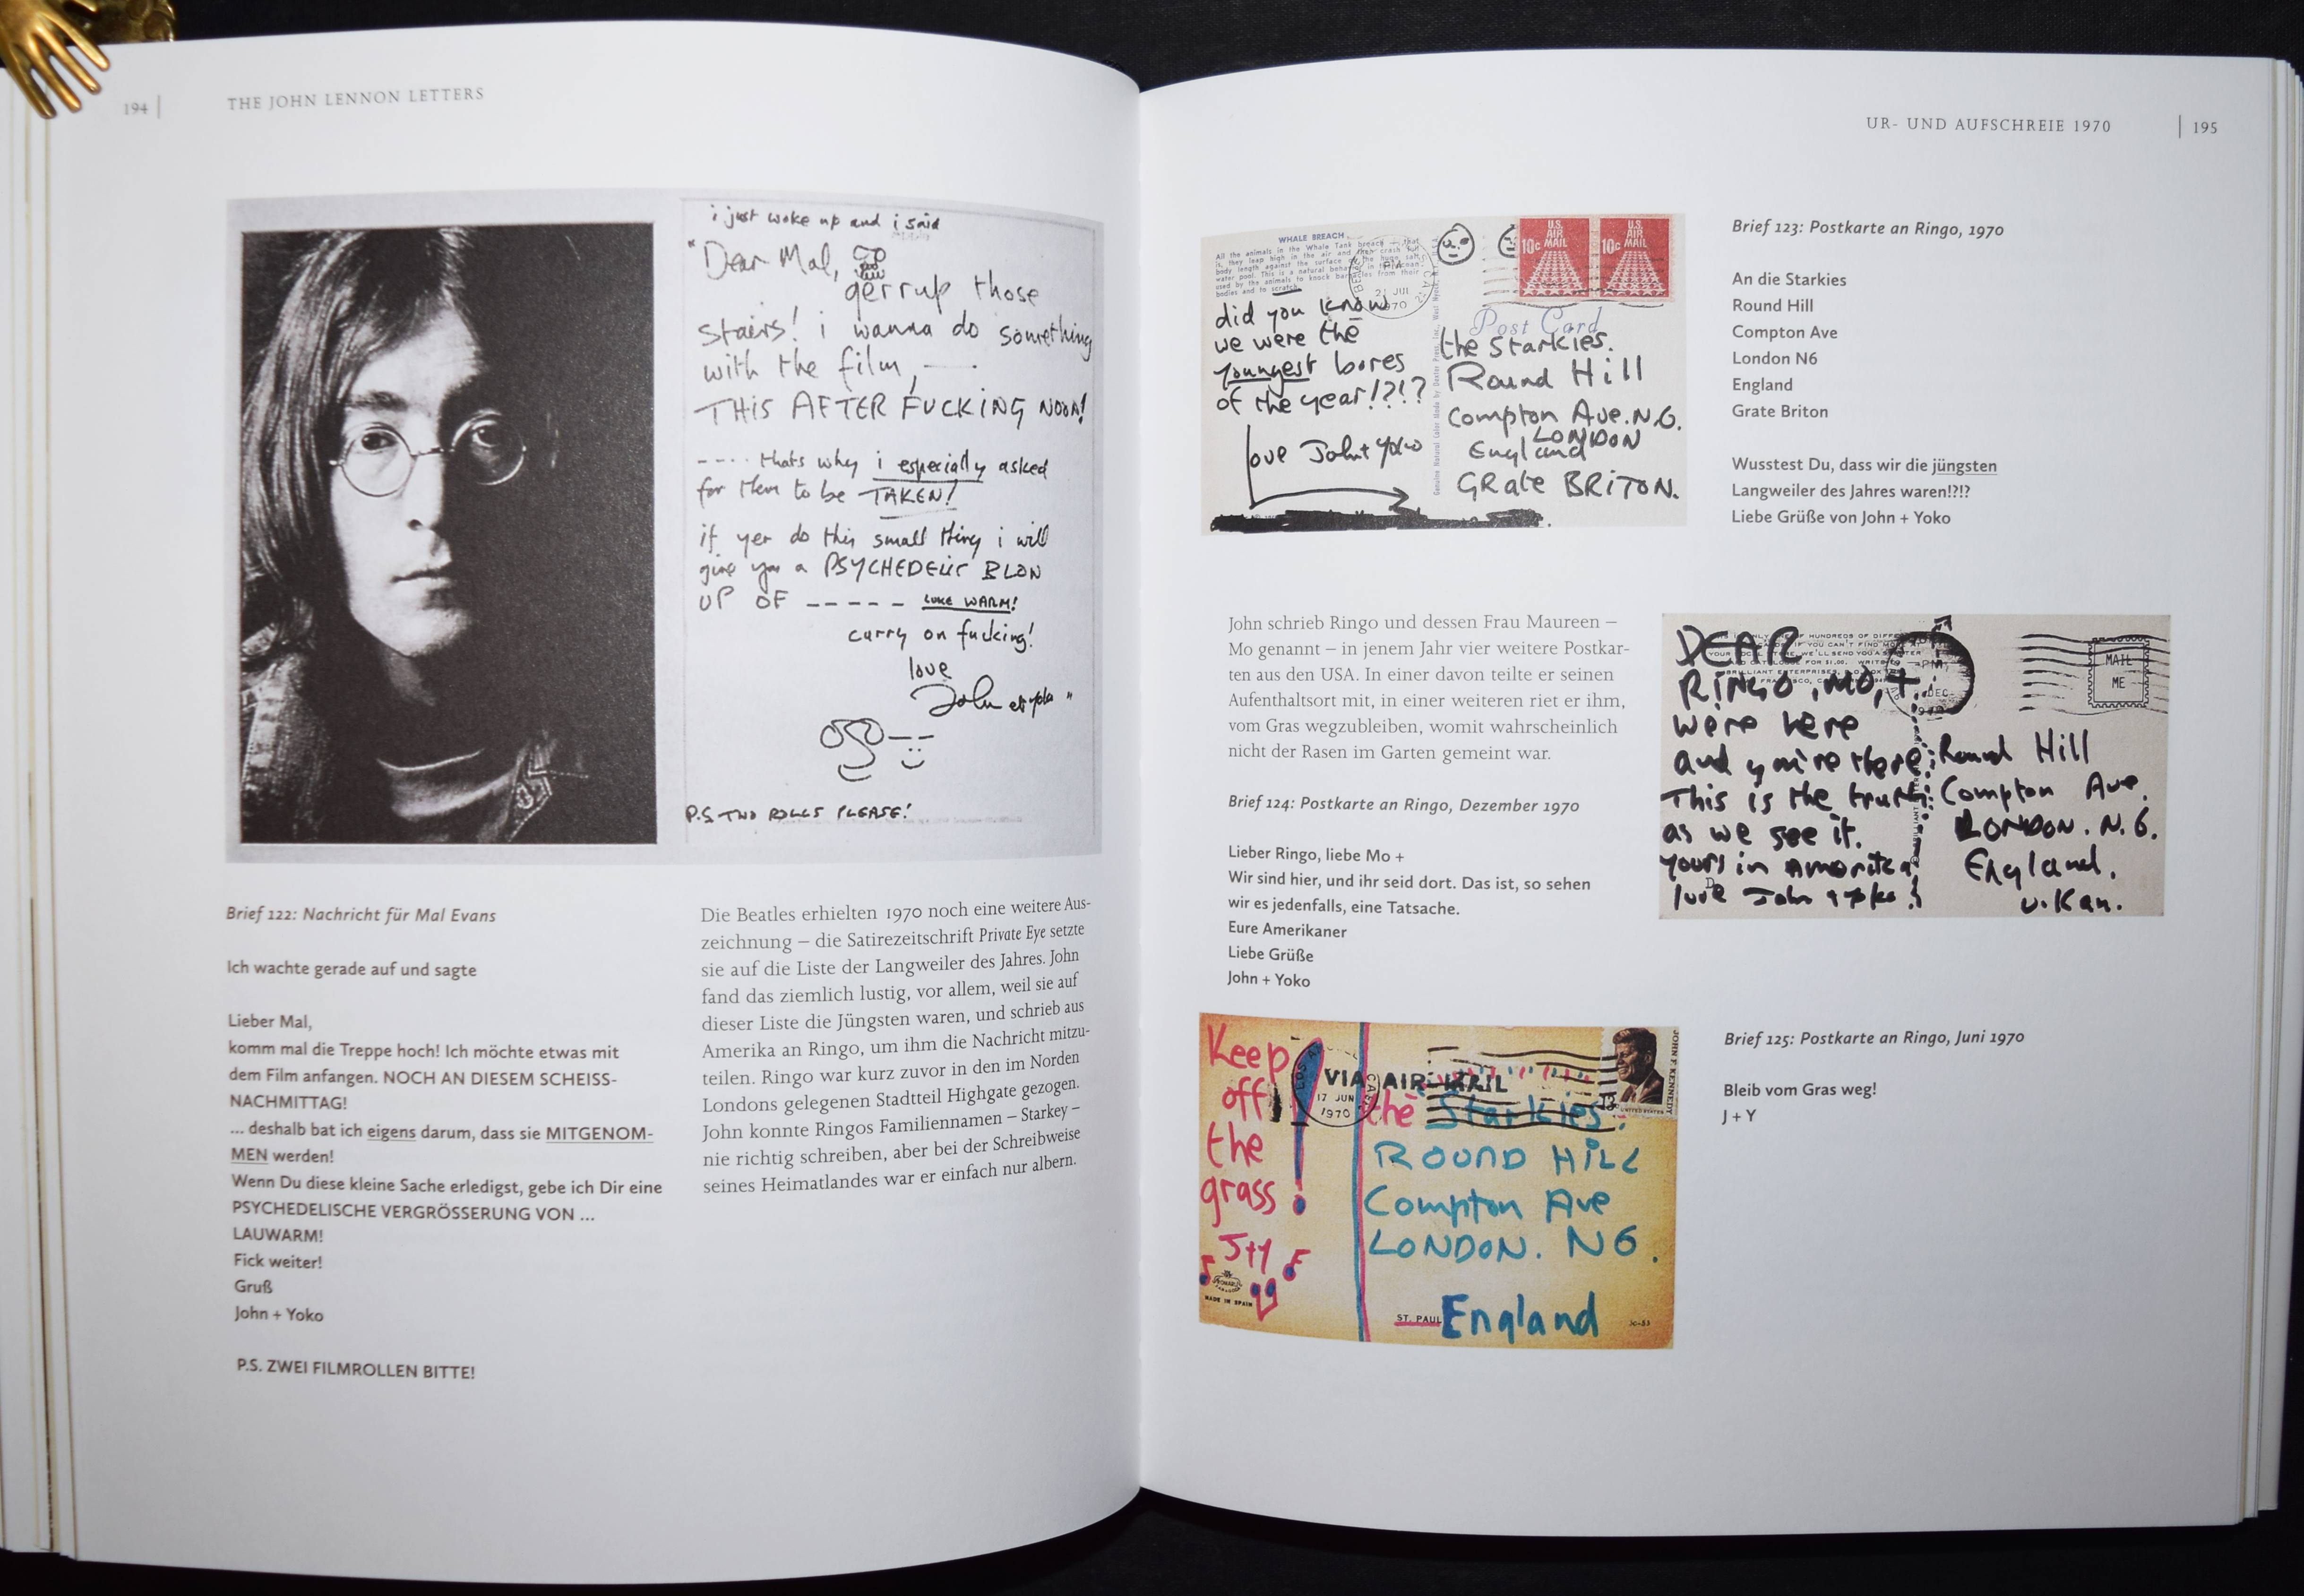 194
THE JOHN LENNON LETTERS
i just woke up and i said
"Dear Mal,
gerrup those
stairs! i wanna do something
with the film, —
THIS AFTER FUCKING NOON!
---- thats why i especially asked
for them to be TAKEN!
if yer do this small thing i will
give you a PSYCHEDELIC BLOW
UP OF ----- LUKE WARM!
carry on fucking!
love
John et yoko "
P.S. TWO ROLLS PLEASE!
Brief 122: Nachricht für Mal Evans
Ich wachte gerade auf und sagte
Lieber Mal,
komm mal die Treppe hoch! Ich möchte etwas mit
dem Film anfangen. NOCH AN DIESEM SCHEISS-
NACHMITTAG!
... deshalb bat ich eigens darum, dass sie MITGENOM-
MEN werden!
Wenn Du diese kleine Sache erledigst, gebe ich Dir eine
PSYCHEDELISCHE VERGRÖSSERUNG VON ...
LAUWARM!
Fick weiter!
Gruß
John + Yoko
P.S. ZWEI FILMROLLEN BITTE!
Die Beatles erhielten 1970 noch eine weitere Aus-
zeichnung – die Satirezeitschrift Private Eye setzte
sie auf die Liste der Langweiler des Jahres. John
fand das ziemlich lustig, vor allem, weil sie auf
dieser Liste die Jüngsten waren, und schrieb aus
Amerika an Ringo, um ihm die Nachricht mitzu-
teilen. Ringo war kurz zuvor in den im Norden
Londons gelegenen Stadtteil Highgate gezogen.
John konnte Ringos Familiennamen – Starkey –
nie richtig schreiben, aber bei der Schreibweise
seines Heimatlandes war er einfach nur albern.
UR- UND AUFSCHREIE 1970
195
WHALE BREACH
All the animals in the Whale Tank breach — that
is, they leap high in the air and then crash full
body length against the surface of the huge salt
water pool. This is a natural behavior in the ocean
used by the animals to knock barnacles from their
bodies and to scratch.
PM
21 JUL
1970
U.S.
AIR
MAIL
10c
U.S.
AIR
MAIL
10c
Post Card
did you know
we were the
youngest bores
of the year!?!?
love John + Yoko
the Starkies.
Round Hill
Compton Ave. N.6.
LONDON
England
GRate BRITON.
Brief 123: Postkarte an Ringo, 1970
An die Starkies
Round Hill
Compton Ave
London N6
England
Grate Briton
Wusstest Du, dass wir die jüngsten
Langweiler des Jahres waren!?!?
Liebe Grüße von John + Yoko
John schrieb Ringo und dessen Frau Maureen –
Mo genannt – in jenem Jahr vier weitere Postkar-
ten aus den USA. In einer davon teilte er seinen
Aufenthaltsort mit, in einer weiteren riet er ihm,
vom Gras wegzubleiben, womit wahrscheinlich
nicht der Rasen im Garten gemeint war.
Brief 124: Postkarte an Ringo, Dezember 1970
Lieber Ringo, liebe Mo +
Wir sind hier, und ihr seid dort. Das ist, so sehen
wir es jedenfalls, eine Tatsache.
Eure Amerikaner
Liebe Grüße
John + Yoko
DEAR
RINGO, MO, +
were here
and you're there:
This is the truth
as we see it.
yours in Amerika
love John + Yoko!
PM
DEC
MAIL
ME
Round Hill
Compton Ave.
LONDON. N.6.
England.
U.Kan.
Keep
off
the
grass!
J+Y
MADE IN SPAIN
VIA AIR MAIL
17 JUN
1970
JOHN F. KENNEDY
13c
UNITED STATES
the Starkies.
ROUND HILL
Compton Ave
LONDON. N6.
England
ST. PAUL
Brief 125: Postkarte an Ringo, Juni 1970
Bleib vom Gras weg!
J + Y